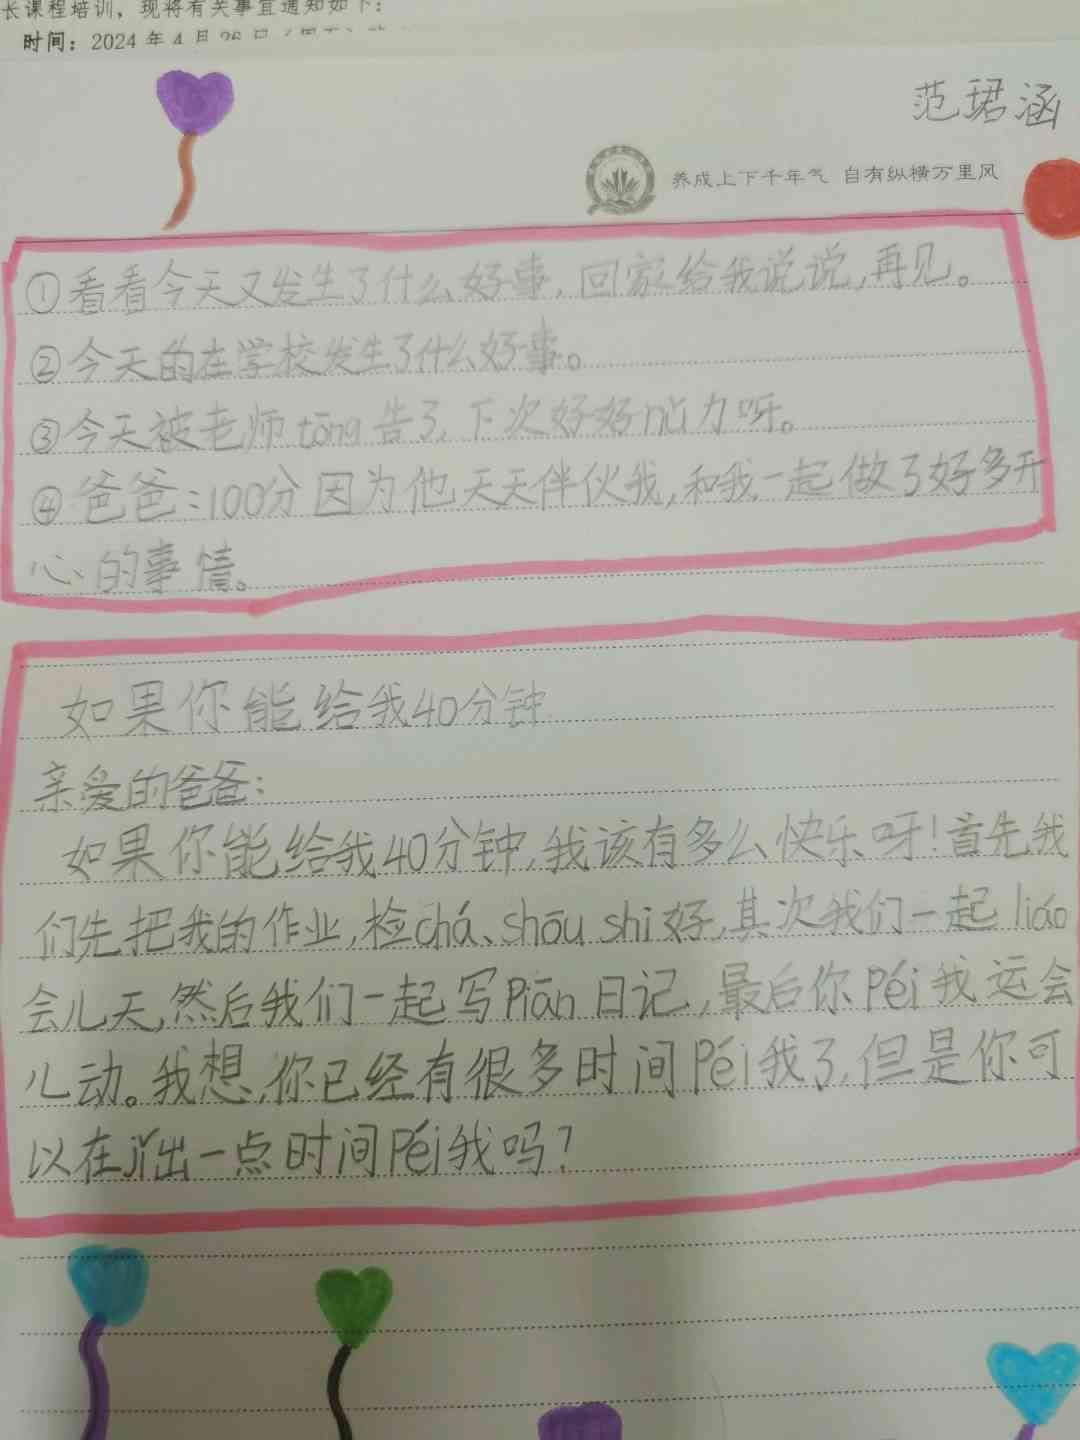 长课程培训，现将有关事宜通知如下：
时间：2024年4月26日
范珺涵
养成上下千年气 自有纵横万里风
①看看今天又发生了什么好事，回家给我说说，再见。
②今天的在学校发生了什么好事。
③今天被老师tōng告了，下次好好nǔ力呀。
④爸爸：100分因为他天天伴伙我，和我一起做了好多开
心的事情。
如果你能给我40分钟
亲爱的爸爸：
如果你能给我40分钟，我该有多么快乐呀！首先我
们先把我的作业，检chá、shōu shi好，其次我们一起liáo
会儿天，然后我们一起写Piān日记，最后你Péi我运会
儿动。我想，你已经有很多时间Péi我了，但是你可
以在jǐ出一点时间Péi我吗？